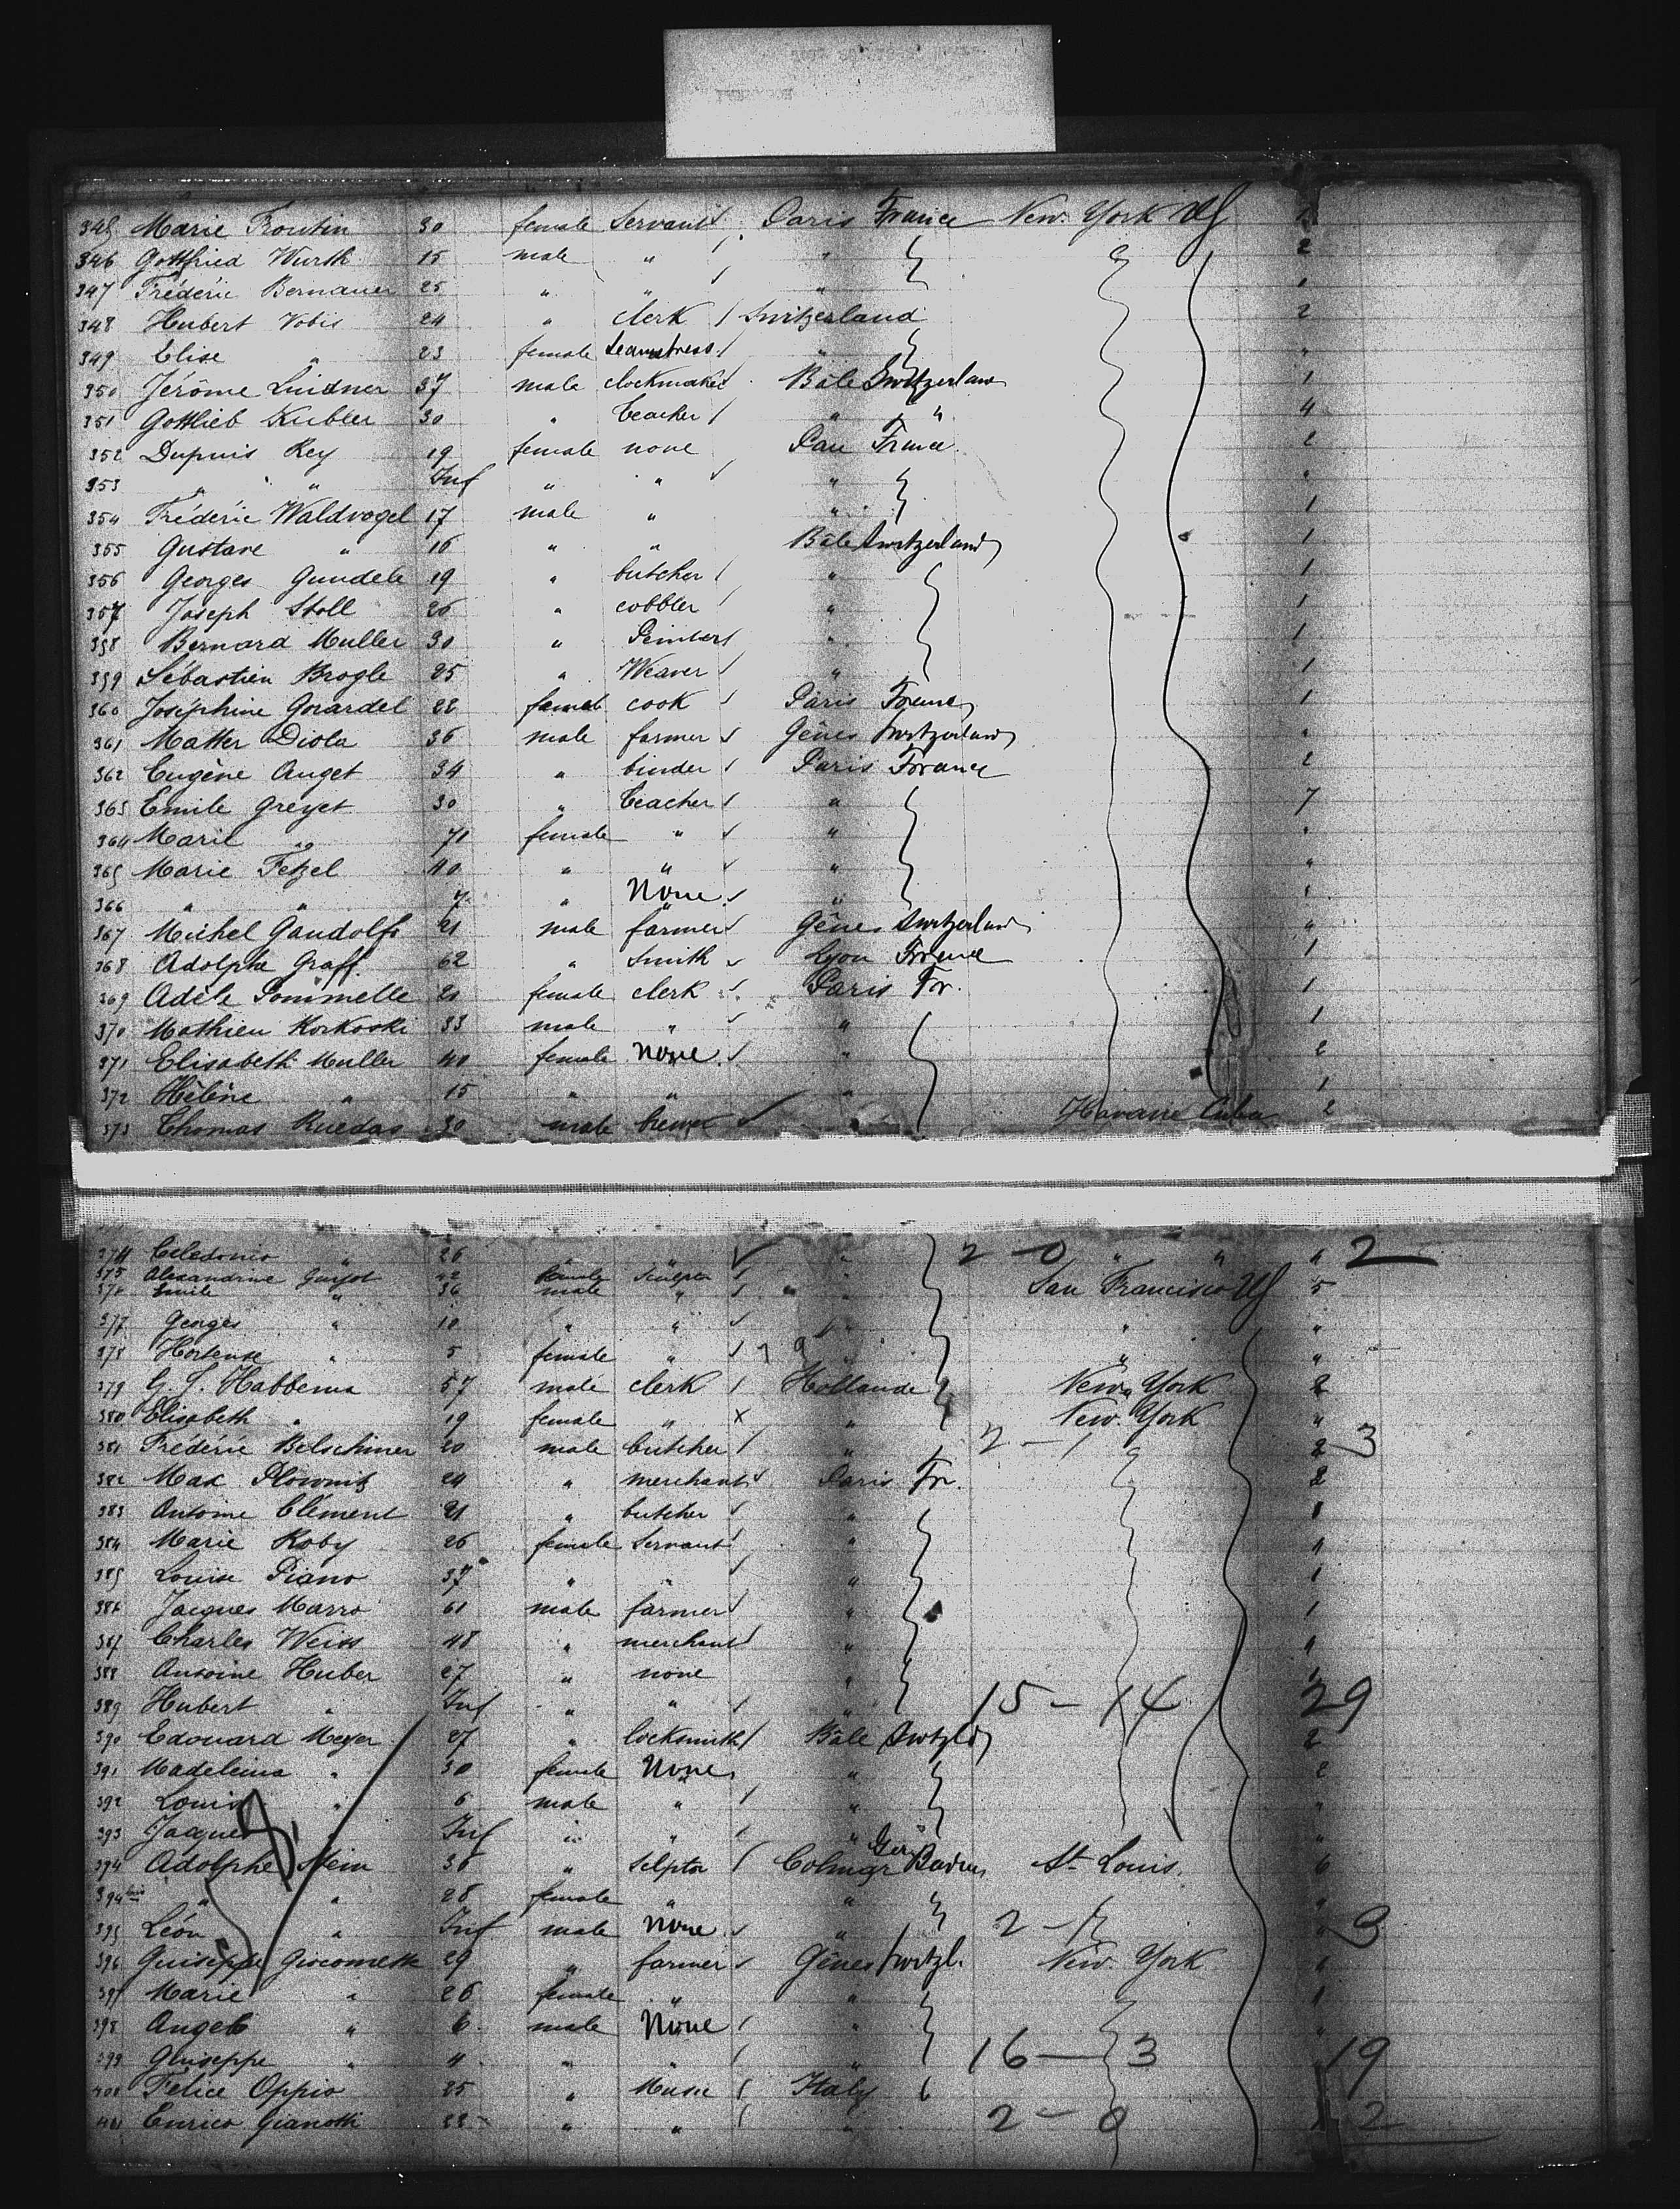 345 Marie Troutin 30 female Servant Paris France New York US 1
346 Gottfried Wurth 15 male " " 2
347 Frédéric Bernauer 25 " " " "
348 Hubert Vobis 24 " clerk Switzerland 2
349 Elise " 23 female seamstress " "
350 Jérôme Lindner 37 male clockmaker Bâle Switzerland 1
351 Gottlieb Kubler 30 " teacher " " 4
352 Dupuis Rey 19 female none Pau France 2
353 " " Inf " " " "
354 Frédéric Waldvogel 17 male " " 1
355 Gustave " 16 " " Bâle Switzerland 1
356 Georges Gundele 19 " butcher " 1
357 Joseph Stoll 26 " cobbler " 1
358 Bernard Muller 30 " " 1
359 Sébastien Brogle 25 " Weaver " 1
360 Joséphine Gorardel 22 female cook Paris France 1
361 Matter Diola 36 male farmer Gênes Switzerland "
362 Eugène Auget 34 " binder Paris France 2
363 Emile Greyet 30 " teacher " 7
364 Marie " 71 female " " "
365 Marie Fetzel 40 " " " "
366 " " 7 " None " 1
367 Michel Gandolfo 21 male farmer Gênes Switzerland "
368 Adolphe Graff 62 " Smith Lyon France 1
369 Adèle Pommelle 21 female clerk Paris Fr. 1
370 Mathieu Korkoski 33 male " " 1
371 Elisabeth Muller 40 female none " 2
372 Hélène " 15 " " " 1
373 Thomas Ruedas 30 male brewer " Havane Cuba 2
374 Celedonio " 26 " " " 2 - 0 " " " 2
375 Alexandrine Guyot 42 female "
376 Emile " 36 male " " San Francisco US 5
377 Georges " 10 " " " " "
378 Hortense " 5 female " " " "
379 G. S. Habbema 57 male clerk Hollande New York 2
380 Elisabeth " 19 female " x " New York "
381 Frédéric Belschiner 20 male butcher " 2 - 1 2 3
382 Max Plownitz 24 " merchant Paris Fr. 2
383 Antoine Clément 21 " butcher " 1
384 Marie Koby 26 female Servant " 1
385 Louise Piano 37 " " " 1
386 Jacques Marro 61 male farmer " 1
387 Charles Weiss 48 " merchant " 1
388 Antoine Huber 27 " none " 1
389 Hubert " Inf " " " 15 - 14 29
390 Edouard Meyer 27 " locksmith Bâle Switzld 2
391 Madeleina " 30 female None " 2
392 Louis " 6 male " " "
393 Jacques " Inf " " " "
394 Adolphe Stein 36 " Sclptor Colmar Ger Baden St Louis 6
394 bis " " 28 female " " "
395 Léon " Inf male None " 2 - 1 " 3
396 Guiseppe Giocometti 29 " farmer Gênes Switzl. New York 1
397 Marie " 26 female " " 1
398 Angelo " 6 male None " "
399 Guiseppe " 4 " " " 16 - 3 " 19
400 Felice Oppio 25 " Music Italy
401 Enrico Gianotti 33 " " " 2 - 0 1 2